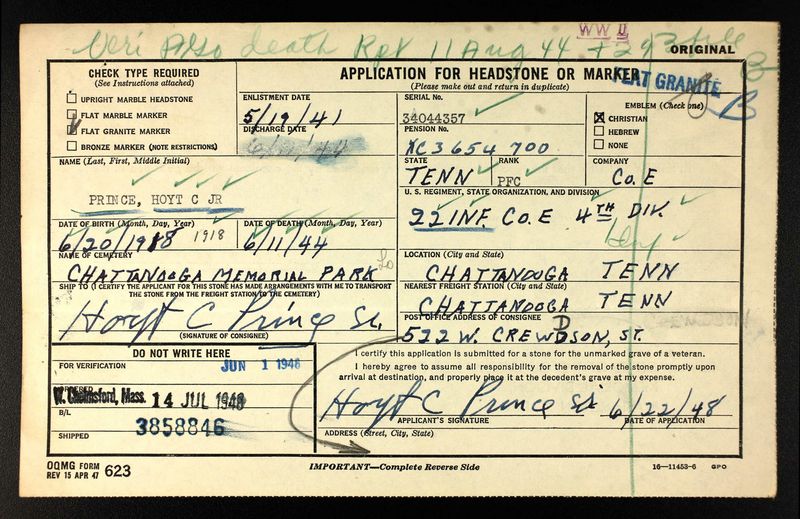 WW II
Veri Also death Rpt 11 Aug 44 + 293 file
ORIGINAL
B
CHECK TYPE REQUIRED
(See Instructions attached)
UPRIGHT MARBLE HEADSTONE
FLAT MARBLE MARKER
FLAT GRANITE MARKER
BRONZE MARKER (NOTE RESTRICTIONS)
APPLICATION FOR HEADSTONE OR MARKER
(Please make out and return in duplicate)
FLAT GRANITE
B
ENLISTMENT DATE
5/19/41
DISCHARGE DATE
6/11/44
SERIAL No.
34044357
PENSION No.
XC 3654 700
EMBLEM (Check one)
X CHRISTIAN
HEBREW
NONE
NAME (Last, First, Middle Initial)
PRINCE, HOYT C JR
STATE
TENN
RANK
PFC
COMPANY
Co. E
U. S. REGIMENT, STATE ORGANIZATION, AND DIVISION
22 INF. Co. E 4TH DIV.
Inf
DATE OF BIRTH (Month, Day, Year)
6/20/1918 1918
DATE OF DEATH (Month, Day, Year)
6/11/44
NAME OF CEMETERY
CHATTANOOGA MEMORIAL PARK
LOCATION (City and State)
CHATTANOOGA TENN
SHIP TO (I CERTIFY THE APPLICANT FOR THIS STONE HAS MADE ARRANGEMENTS WITH ME TO TRANSPORT
THE STONE FROM THE FREIGHT STATION TO THE CEMETERY)
Hoyt C Prince Sr.
(SIGNATURE OF CONSIGNEE)
NEAREST FREIGHT STATION (City and State)
CHATTANOOGA TENN
POST OFFICE ADDRESS OF CONSIGNEE
522 W. CREWDSON, ST.
DO NOT WRITE HERE
FOR VERIFICATION
JUN 1 1948
ORDERED
W. Chelmsford, Mass. 14 JUL 1948
B/L
3858846
SHIPPED
I certify this application is submitted for a stone for the unmarked grave of a veteran.
I hereby agree to assume all responsibility for the removal of the stone promptly upon
arrival at destination, and properly place it at the decedent's grave at my expense.
Hoyt C Prince Sr 6/22/48
APPLICANT'S SIGNATURE
DATE OF APPLICATION
ADDRESS (Street, City, State)
OQMG FORM
REV 15 APR 47 623
IMPORTANT—Complete Reverse Side
16—11453-6 GPO